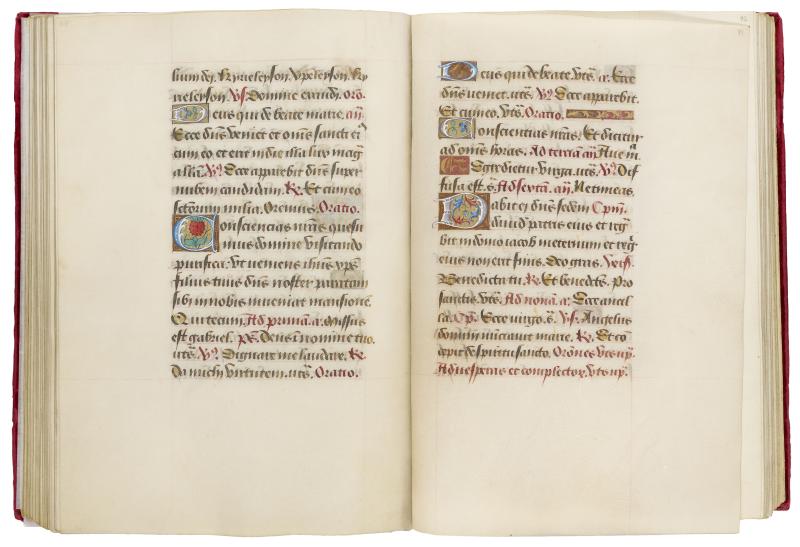 lium dei. Kyrieleyson. Xpeleyson. Ky
rieleyson. Vs. Domine exaudi. Orō.
Deus qui de beate marie. añ.
Ecce dñs veniet et om̄s sancti ei9
cum eo et erit in die illa lux mag
alla. V9. Ecce apparebit dñs super
nubem candidam. R. Et cum eo
sctorum milia. Oremus. Oratio.
Consciencias nr̄as quesu
mus domine visitando
purifica: vt veniens ihūs xps
filius tuus dñs noster paratam
sibi in nobis inveniat mansionē.
Qui tecum. Ad primā. a. Missus
est gabriel. ps. Deus in nomine tuo.
vts. V9. Dignare me laudare. R.
Da michi virtutem. vts. Oratio.
Deus qui de beate. vts. a. Ecce
dñs veniet. vts. V9. Ecce apparebit.
Et cum eo. vts. Oratio.
Conscientias nr̄as. Et dicatur
ad om̄s horas. Ad terciā añ Aue m̄a.
Egredietur virga. vts. V9. Dif
fusa est. s. Ad sextā. añ. Ne timeas.
Dabit ei dñs sedem Cpm̄.
dauid patris eius et reg
bit in domo iacob in eternum et reg̃
eius non erit finis. Deo gras. Vers.
Benedicta tu. R. Et benedcts. Pro
sanctis. vts. Ad nonā. a. Ecce ancil
la. Cp. Ecce virgo. s. Vs. Angelus
domini nunciauit marie. R. Et cō
cepit de spiritu sancto. Orōnes vts up.
Ad vesperas et complector. vts up.